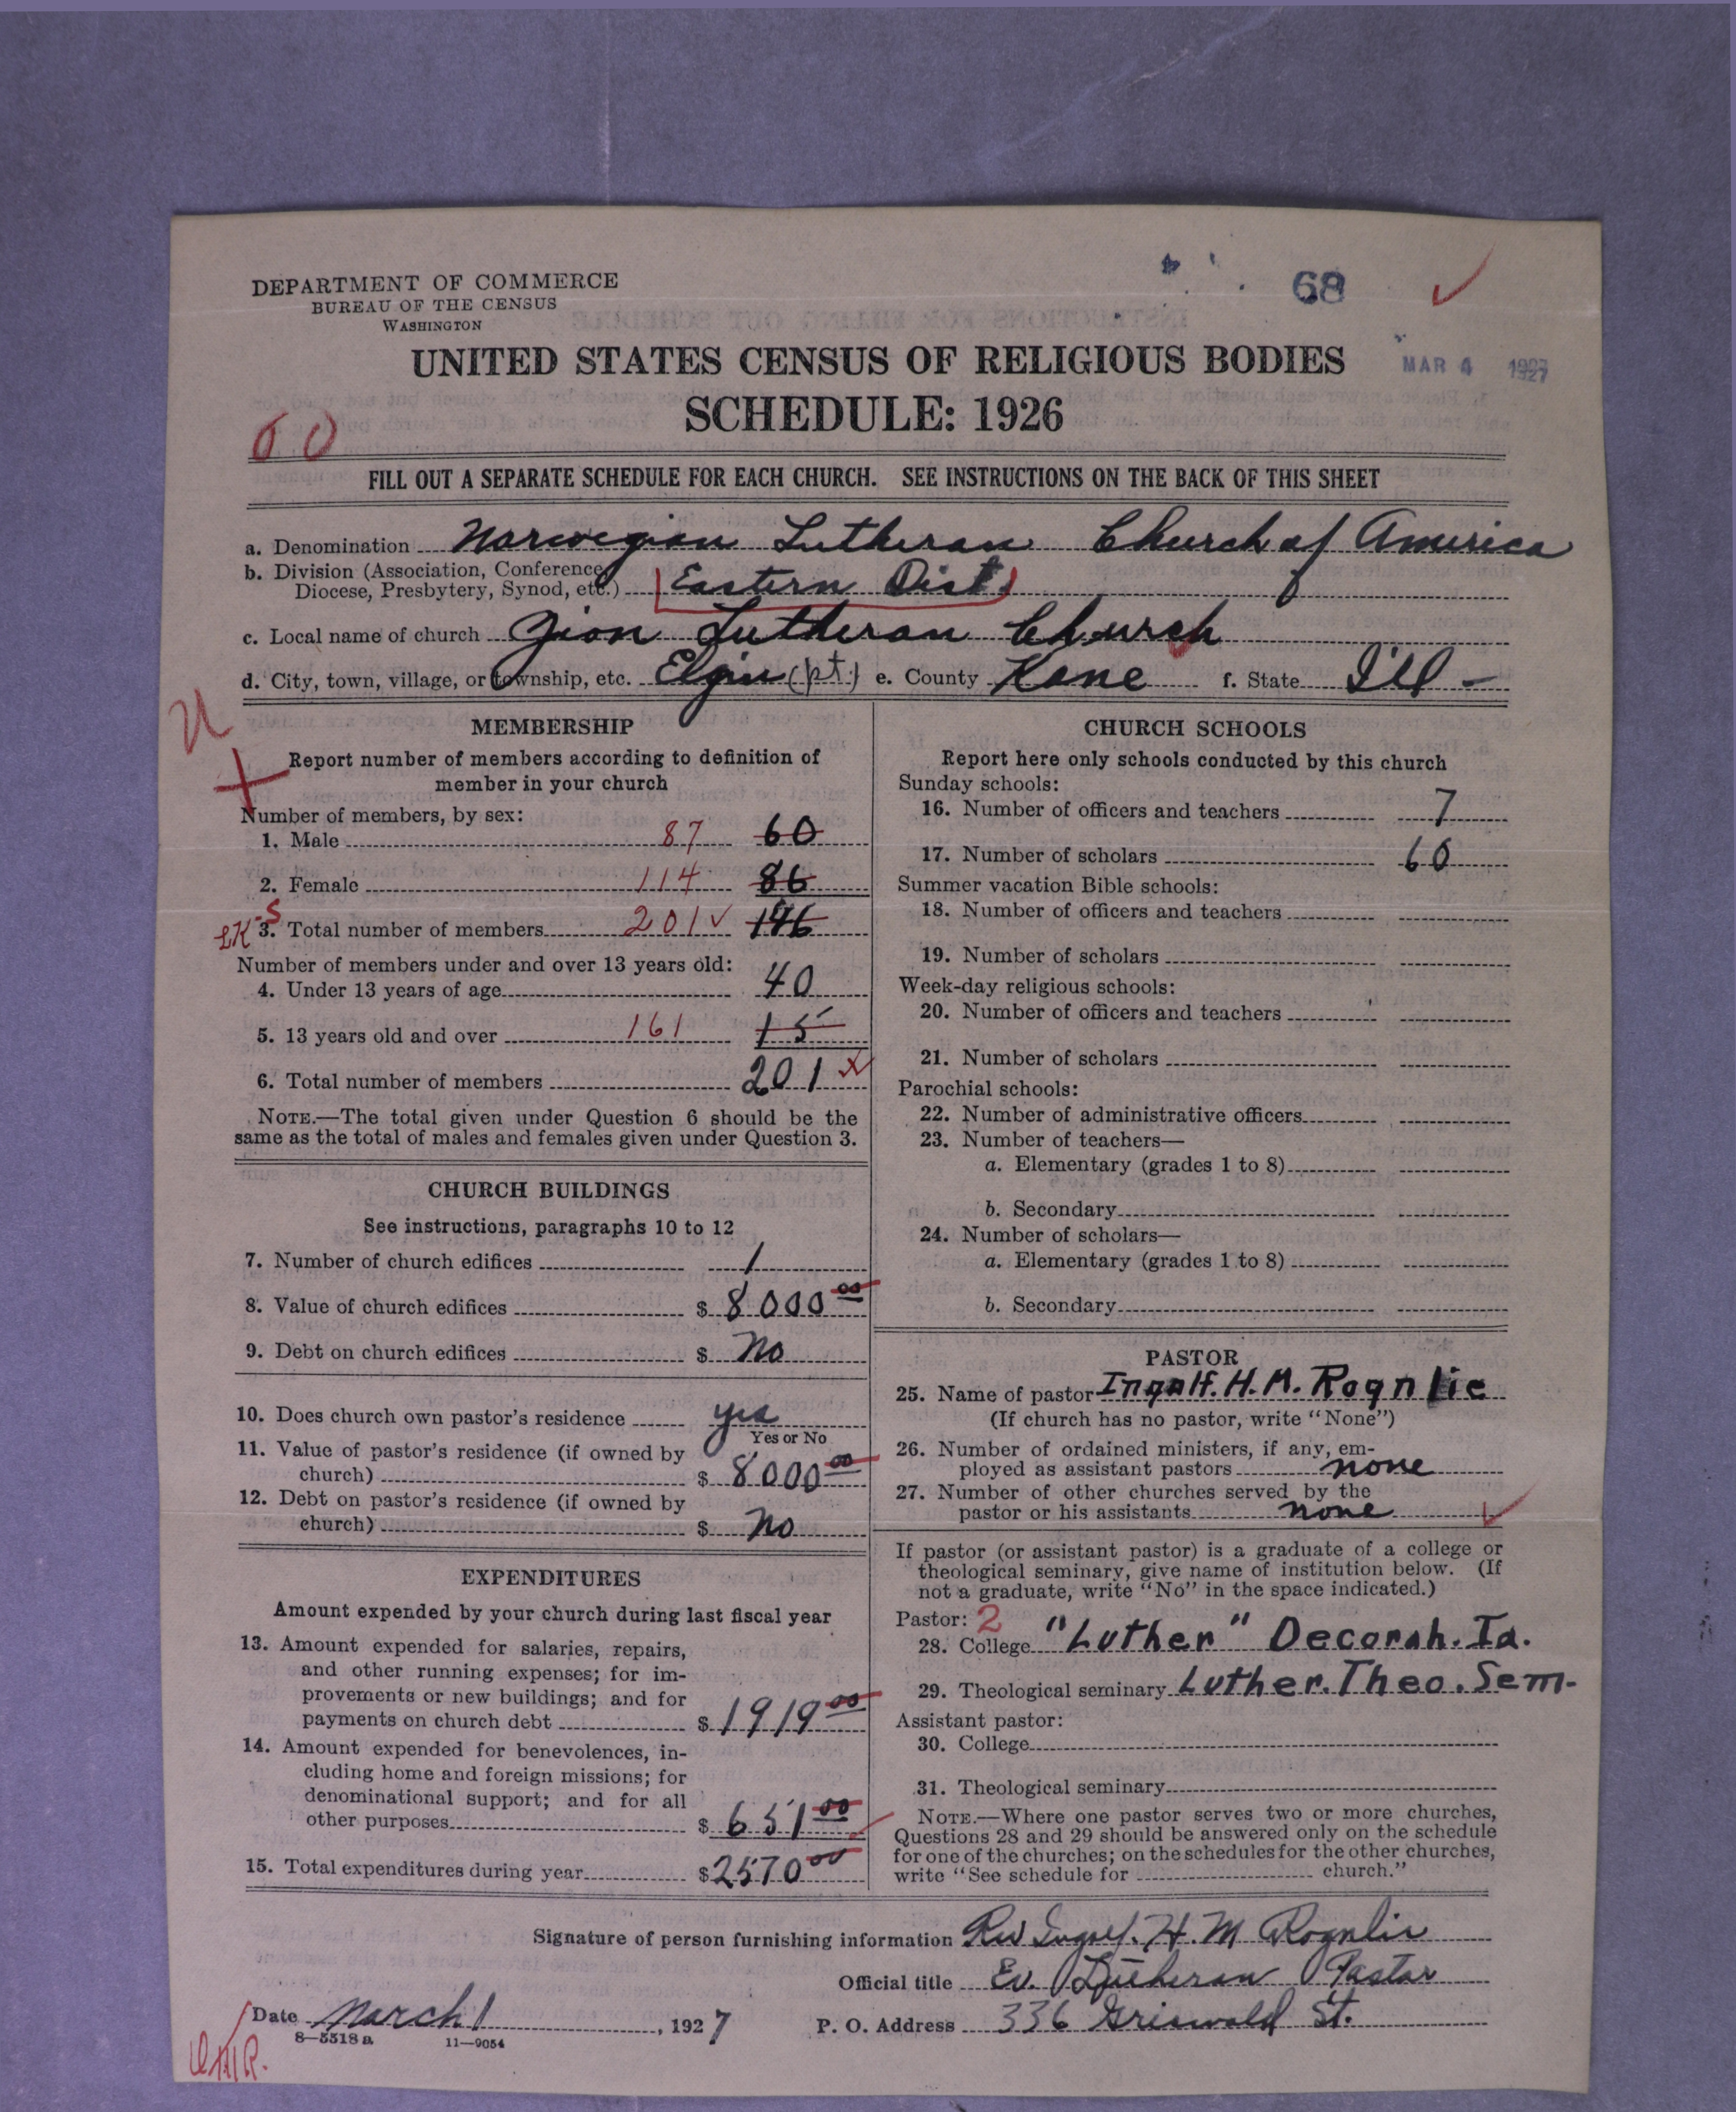 DEPARTMENT OF COMMERCE
BUREAU OF THE CENSUS
WASHINGTON
68
UNITED STATES CENSUS OF RELIGIOUS BODIES
MAR 4 1927
SCHEDULE: 1926
60
FILL OUT A SEPARATE SCHEDULE FOR EACH CHURCH. SEE INSTRUCTIONS ON THE BACK OF THIS SHEET
a. Denomination Norwegian Lutheran Church of America
b. Division (Association, Conference,
Diocese, Presbytery, Synod, etc.) Eastern Dist.
c. Local name of church Zion Lutheran Church
d. City, town, village, or township, etc. Elgin (pt.) e. County Kane f. State Ill -
MEMBERSHIP
Report number of members according to definition of
member in your church
Number of members, by sex:
1. Male 87 60
2. Female 114 86
3. Total number of members 201 ✓ 146
Number of members under and over 13 years old:
4. Under 13 years of age 40
5. 13 years old and over 161 15
6. Total number of members 201 x
NOTE.—The total given under Question 6 should be the
same as the total of males and females given under Question 3.
CHURCH BUILDINGS
See instructions, paragraphs 10 to 12
7. Number of church edifices 1
8. Value of church edifices $ 8000 00
9. Debt on church edifices $ no
10. Does church own pastor's residence yes
Yes or No
11. Value of pastor's residence (if owned by
church) $ 8000 00
12. Debt on pastor's residence (if owned by
church) $ no
EXPENDITURES
Amount expended by your church during last fiscal year
13. Amount expended for salaries, repairs,
and other running expenses; for im-
provements or new buildings; and for
payments on church debt $ 1919 00
14. Amount expended for benevolences, in-
cluding home and foreign missions; for
denominational support; and for all
other purposes $ 651 00
15. Total expenditures during year $ 2570 00
CHURCH SCHOOLS
Report here only schools conducted by this church
Sunday schools:
16. Number of officers and teachers 7
17. Number of scholars 60
Summer vacation Bible schools:
18. Number of officers and teachers
19. Number of scholars
Week-day religious schools:
20. Number of officers and teachers
21. Number of scholars
Parochial schools:
22. Number of administrative officers
23. Number of teachers—
a. Elementary (grades 1 to 8)
b. Secondary
24. Number of scholars—
a. Elementary (grades 1 to 8)
b. Secondary
PASTOR
25. Name of pastor Ingolf. H. M. Rognlie
(If church has no pastor, write "None")
26. Number of ordained ministers, if any, em-
ployed as assistant pastors none
27. Number of other churches served by the
pastor or his assistants none
If pastor (or assistant pastor) is a graduate of a college or
theological seminary, give name of institution below. (If
not a graduate, write "No" in the space indicated.)
Pastor: 2
28. College "Luther" Decorah. Ia.
29. Theological seminary Luther. Theo. Sem.
Assistant pastor:
30. College
31. Theological seminary
NOTE.—Where one pastor serves two or more churches,
Questions 28 and 29 should be answered only on the schedule
for one of the churches; on the schedules for the other churches,
write "See schedule for church."
Signature of person furnishing information Rev Ingolf. H. M Rognlie
Official title Ev. Lutheran Pastor
Date March 1, 1927 P. O. Address 336 Griswold St.
8—5518 a 11—9054